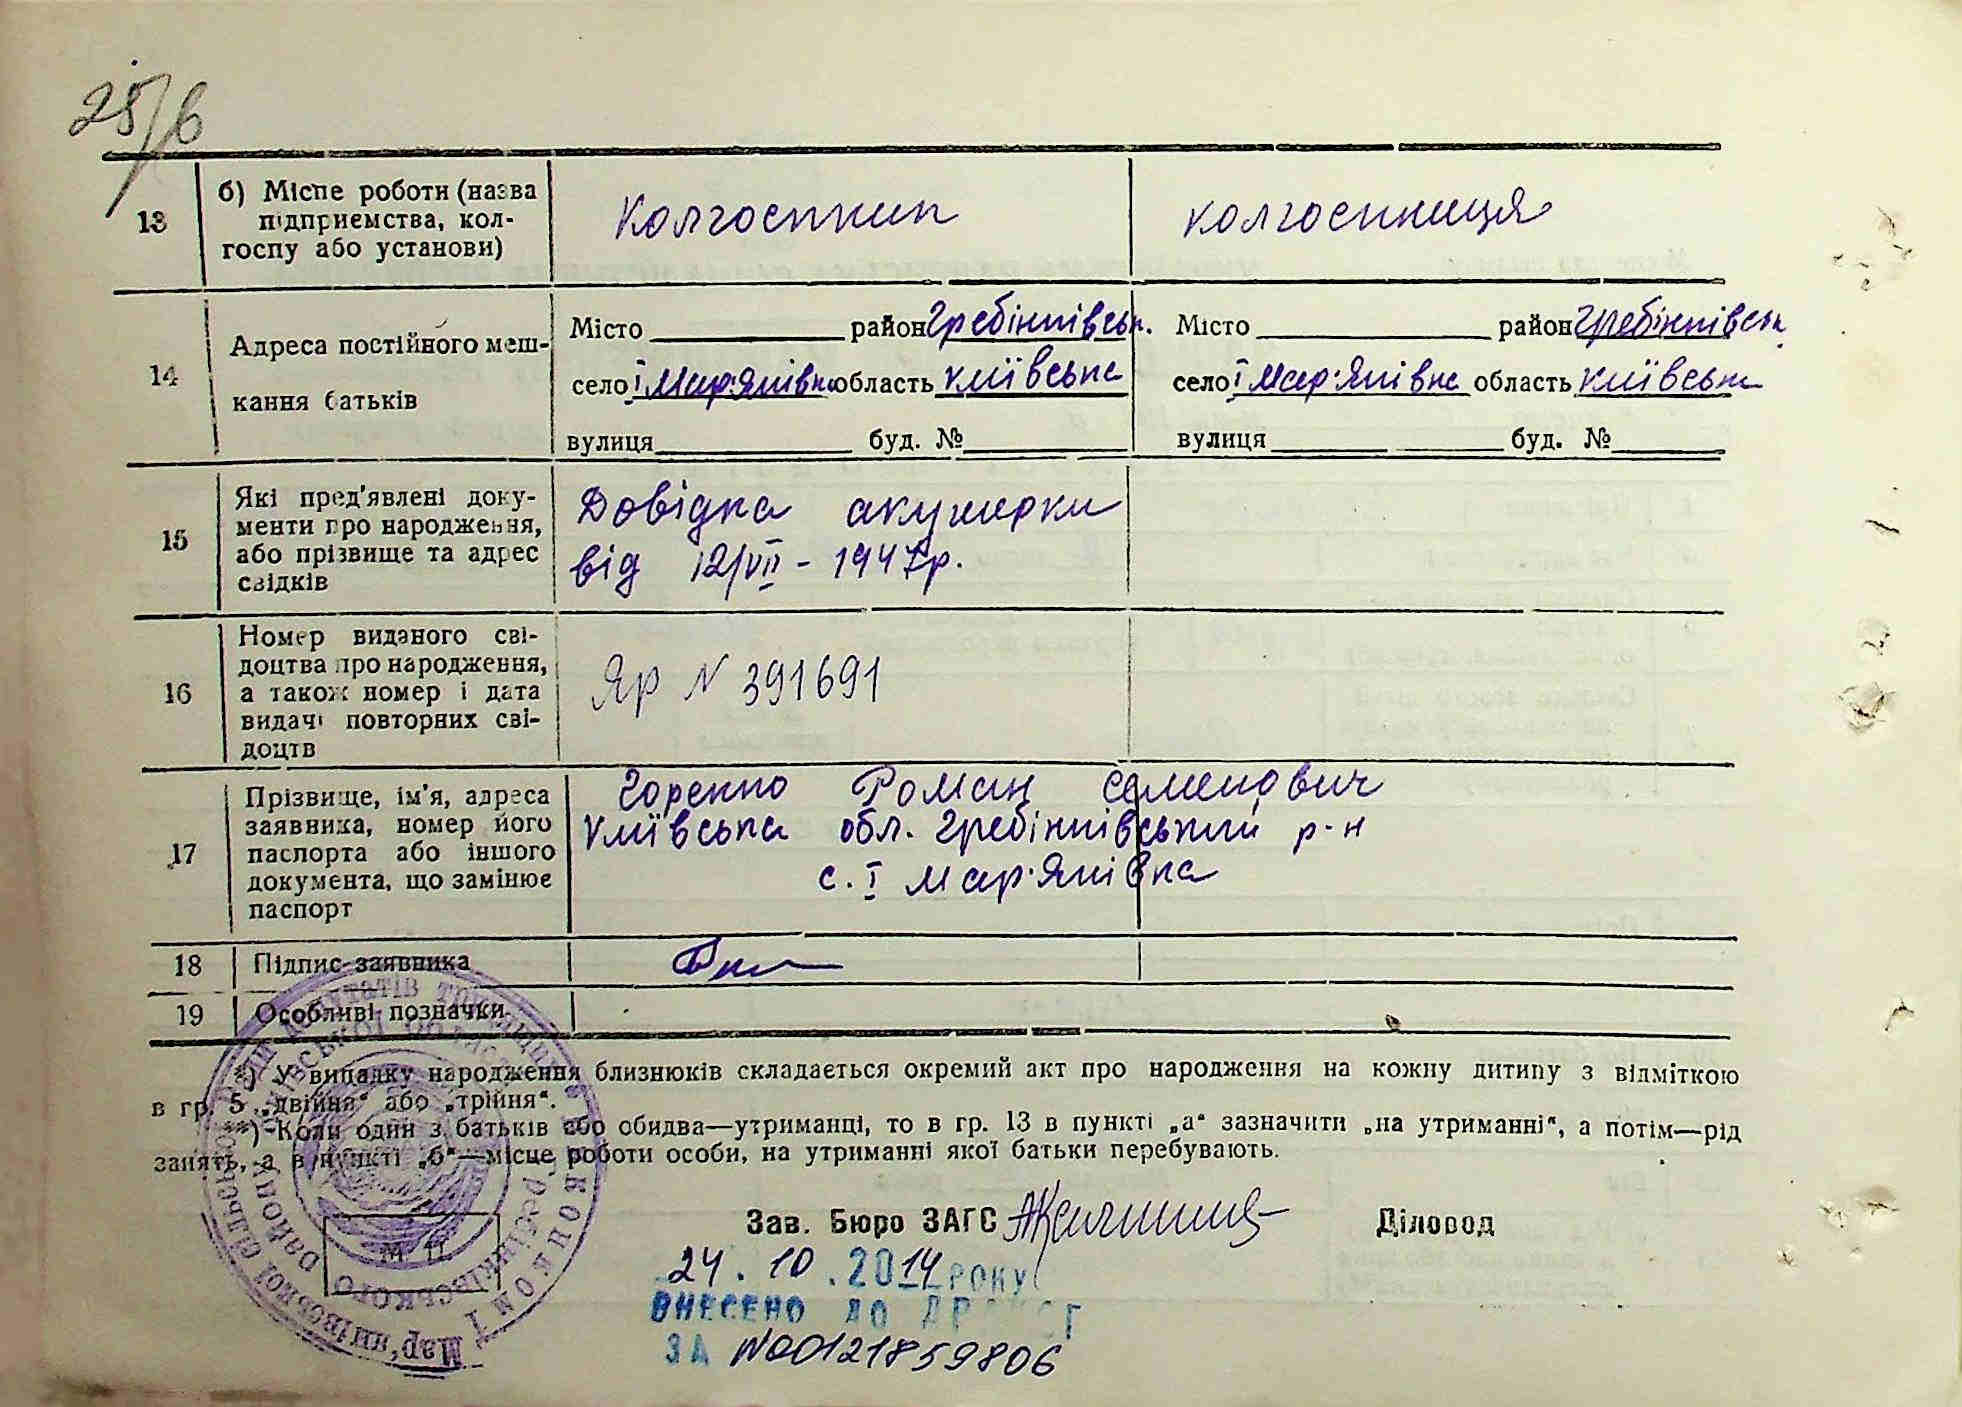 25/6
13
б) Місце роботи (назва
підприємства, кол-
госпу або установи)
Колгоспник
колгоспниця
14
Адреса постійного меш-
кання батьків
Місто район Гребінківськ.
село І Мар'янівка область Київська
вулиця буд. №
Місто район Гребінківськ
село І Мар'янівка область Київська
вулиця буд. №
15
Які пред'явлені доку-
менти про народження,
або прізвище та адрес
свідків
Довідка акушерки
від 12/VII - 1947р.
16
Номер виданого сві-
доцтва про народження,
а також номер і дата
видачі повторних сві-
доцтв
Яр N 391691
17
Прізвище, ім'я, адреса
заявника, номер його
паспорта або іншого
документа, що замінює
паспорт
Горенко Роман Семенович
Київська обл. Гребінківський р-н
с. І Мар'янівка
18
Підпис заявника
19
Особливі позначки
*) У випадку народження близнюків складається окремий акт про народження на кожну дитину з відміткою
в гр. 5 „двійня" або „трійня".
**) Коли один з батьків або обидва—утриманці, то в гр. 13 в пункті „а" зазначити „на утриманні", а потім—рід
занять, а в пункті „б"—місце роботи особи, на утриманні якої батьки перебувають.
Зав. Бюро ЗАГС
Діловод
М. П.
24.10.2014 РОКУ
ВНЕСЕНО ДО ДРАЦСГ
ЗА №00121859806